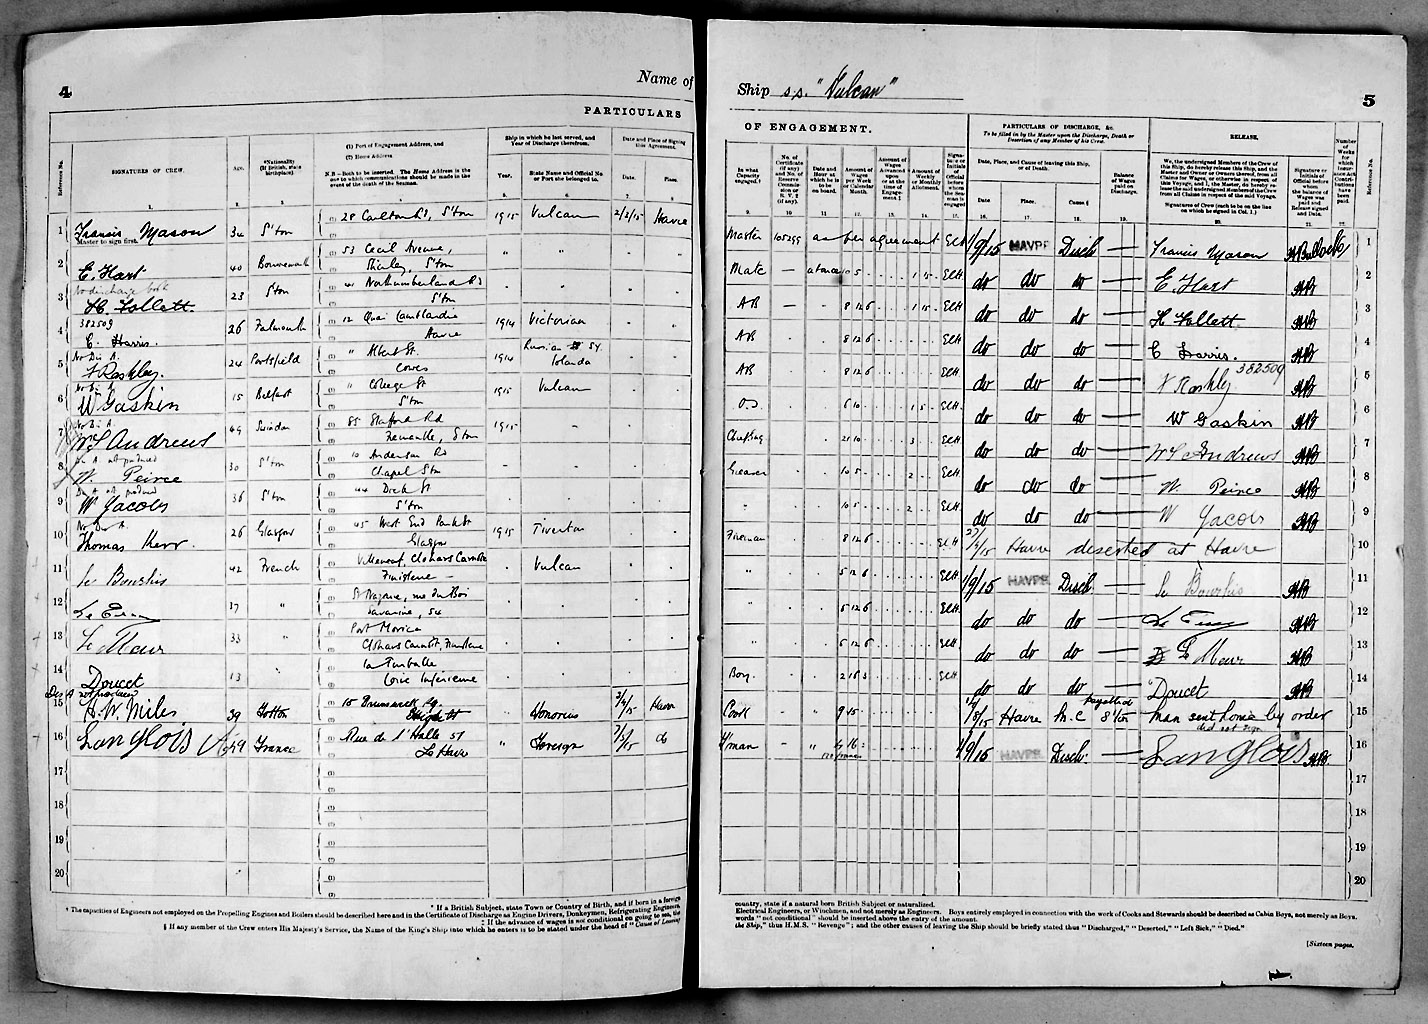 4
Name of
PARTICULARS
Reference No.
SIGNATURES OF CREW.
Age.
*Nationality (If British, state birthplace.)
(1) Port of Engagement Address, and
(2) Home Address.
N.B.—Both to be inserted. The Home Address is the one to which communications should be made in the event of the death of the Seaman.
Ship in which he last served, and Year of Discharge therefrom.
Year.
State Name and Official No. or Port she belonged to.
Date and Place of Signing this Agreement.
Date.
Place.
1 Francis Mason 34 S'ton 28 Carlton Rd, S'ton 1915 Vulcan 2/2/15 Havre
Master to sign first.
2 E. Hart 40 Bournemouth 53 Cecil Avenue, Shirley, S'ton " "
No discharge book
3 H. Follett. 23 S'ton 41 Northumberland Rd S'ton
382509
4 C. Harris. 26 Falmouth 12 Quai Havre 1914 Victorian
No Dis A.
5 F Rashley. 24 Portsfield " Albert St. Cowes 1914 Russian SY Iolanda
No Dis A
6 W Gaskin 15 Belfast " College St S'ton 1915 Vulcan
No Dis A.
7 W S Andrews 49 Swindon 85 Stafford Rd Fremantle, S'ton 1915 "
Dis A not produced
8 W. Peirce 30 S'ton 10 Anderson Rd Chapel S'ton
Dis A not produced
9 W Jacobs 36 S'ton 44 Dock St S'ton
No Dis A.
10 Thomas Kerr. 26 Glasgow 45 West End Park St Glasgow 1915 Tiverton
11 Le Bourhis 42 French Villeneuf, Clohars Carnoet Finisterre " Vulcan
12 17 " St Nazaire, rue du Bois Savarine, 54
13 Le Meur 33 " Port Clohars Carnoet, Finisterre
14 Doucet 13 La Loire Inferieure
Dis A not produced
15 H. W. Miles. 39 Totton 15 Brunswick Sq. High St " Honorius 3/4/15 Havre
16 Langlois A 49 France Rue de l'Halle 51 Le Havre " Foreign 7/5/15 do
17
18
19
20
* If a British Subject, state Town or Country of Birth, and if born in a foreign
† The capacities of Engineers not employed on the Propelling Engines and Boilers should be described here and in the Certificate of Discharge as Engine Drivers, Donkeymen, Refrigerating Engineers,
‡ If the advance of wages is not conditional on going to sea, the
§ If any member of the Crew enters His Majesty's Service, the Name of the King's Ship into which he enters is to be stated under the head of "Cause of Leaving
Ship s.s. "Vulcan"
5
OF ENGAGEMENT.
PARTICULARS OF DISCHARGE, &c.
To be filled in by the Master upon the Discharge, Death or Desertion of any Member of his Crew.
RELEASE.
In what Capacity engaged.†
No. of Certificate (if any) and No. of Reserve Commission or R.V.2 (if any).
Date and Hour at which he is to be on board.
Amount of Wages per Week or Calendar Month.
Amount of Wages Advanced upon or at the time of Engagement.‡
Amount of Weekly or Monthly Allotment.
Signature or Initials of Official before whom the Seaman is engaged
Date, Place, and Cause of leaving this Ship, or of Death.
Date
Place.
Cause §
Balance of Wages paid on Discharge.
We, the undersigned Members of the Crew of this Ship, do hereby release this Ship, and the Master and Owner or Owners thereof, from all Claims for Wages, or otherwise in respect of this Voyage, and I, the Master, do hereby release the undersigned Members of the Crew from all Claims in respect of the said Voyage.
Signatures of Crew (each to be on the line on which he signed in Col. 1.)
Signature or Initials of Official before whom the balance of Wages was paid and Release signed and Date.
Number of Weeks for which Insurance Act Contributions have been paid.
Master 105299 as per agreement ECH 1/9/15 HAVRE Disch — Francis Mason 1
Mate — at once 10 5 1 15 ECH do do do — E. Hart 2
AB — 8 12 6 1 15 ECH do do do — H Follett. 3
AB 8 12 6 ECH do do do — C Harris. 382509 4
AB 8 12 6 ECH do do do — F Rashley 5
O.S. 6 10 1 5 ECH do do do — W Gaskin 6
Chief Eng 21 10 3 ECH do do do — W S Andrews 7
Greaser 10 5 2 ECH do do do — W. Peirce 8
" 10 5 2 ECH do do do — W Jacobs 9
Fireman 8 12 6 ECH 27/4/15 Havre deserted at Havre 10
" 5 12 6 ECH 1/9/15 HAVRE Disch. — Le Bourhis 11
" 5 12 6 ECH do do do — 12
" 5 12 6 ECH do do do — Le Meur 13
Boy. 2 18 3 ECH do do do — Doucet 14
Cook — " 9 15 1/5/15 Havre M.C S'ton Man sent home by order did not sign 15
F'man — " 4 16 francs 1/9/15 HAVRE Disch. — Langlois 16
17
18
19
20
country, state if a natural born British Subject or naturalized.
Electrical Engineers, or Winchmen, and not merely as Engineers. Boys entirely employed in connection with the work of Cooks and Stewards should be described as Cabin Boys, not merely as Boys.
words "not conditional" should be inserted above the entry of the amount.
the Ship," thus H.M.S. "Revenge"; and the other causes of leaving the Ship should be briefly stated thus "Discharged," "Deserted," "Left Sick," "Died."
[Sixteen pages.